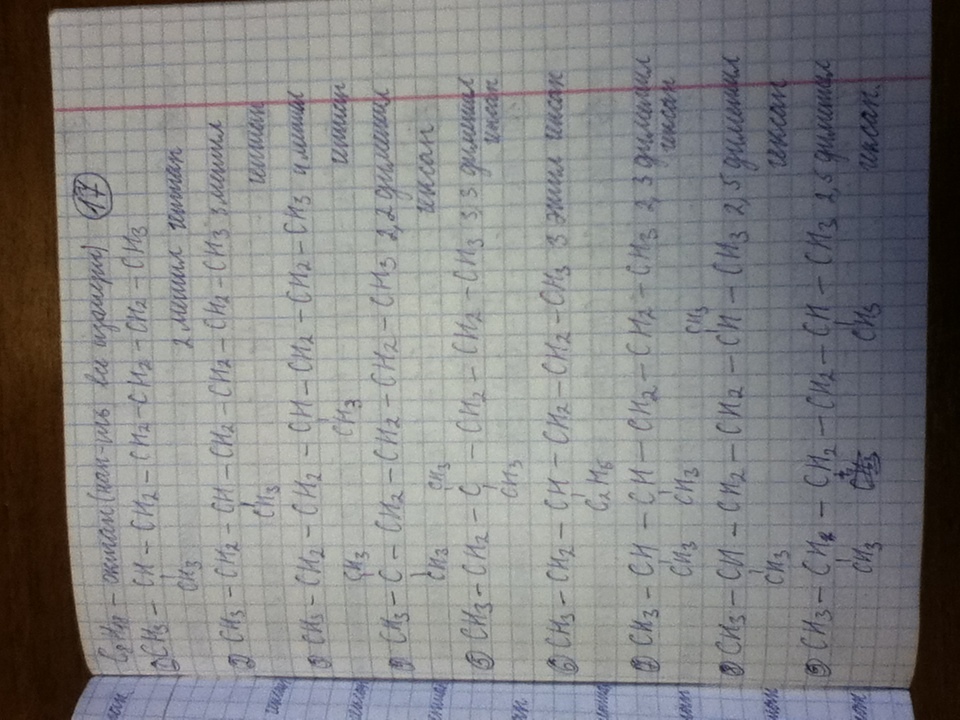 C8H18 - октан (нап-ть все изомеры) 17
① CH3 - CH - CH2 - CH2 - CH2 - CH2 - CH3
CH3 2 метил гептан
② CH3 - CH2 - CH - CH2 - CH2 - CH2 - CH3 3 метил
CH3 гептан
③ CH3 - CH2 - CH2 - CH - CH2 - CH2 - CH3 4 метил
CH3 гептан
CH3
CH3 - C - CH2 - CH2 - CH2 - CH3 2,2 диметил
CH3 CH3 гексан
⑤ CH3 - CH2 - C - CH2 - CH2 - CH3 3,3 диметил
CH3 гексан
⑥ CH3 - CH2 - CH - CH2 - CH2 - CH3 3 этил гексан
C2H5
⑦ CH3 - CH - CH - CH2 - CH2 - CH3 2,3 диметил
CH3 CH3 CH3 гексан
⑧ CH3 - CH - CH2 - CH2 - CH - CH3 2,5 диметил
CH3 гексан
⑨ CH3 - CH - CH2 - CH2 - CH - CH3 2,5 диметил
CH3 CH3 гексан.